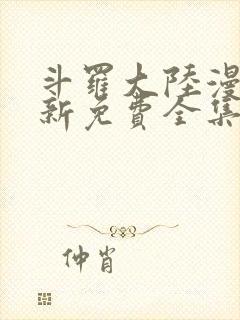 斗羅大陸漫
新免費全集
仲肖